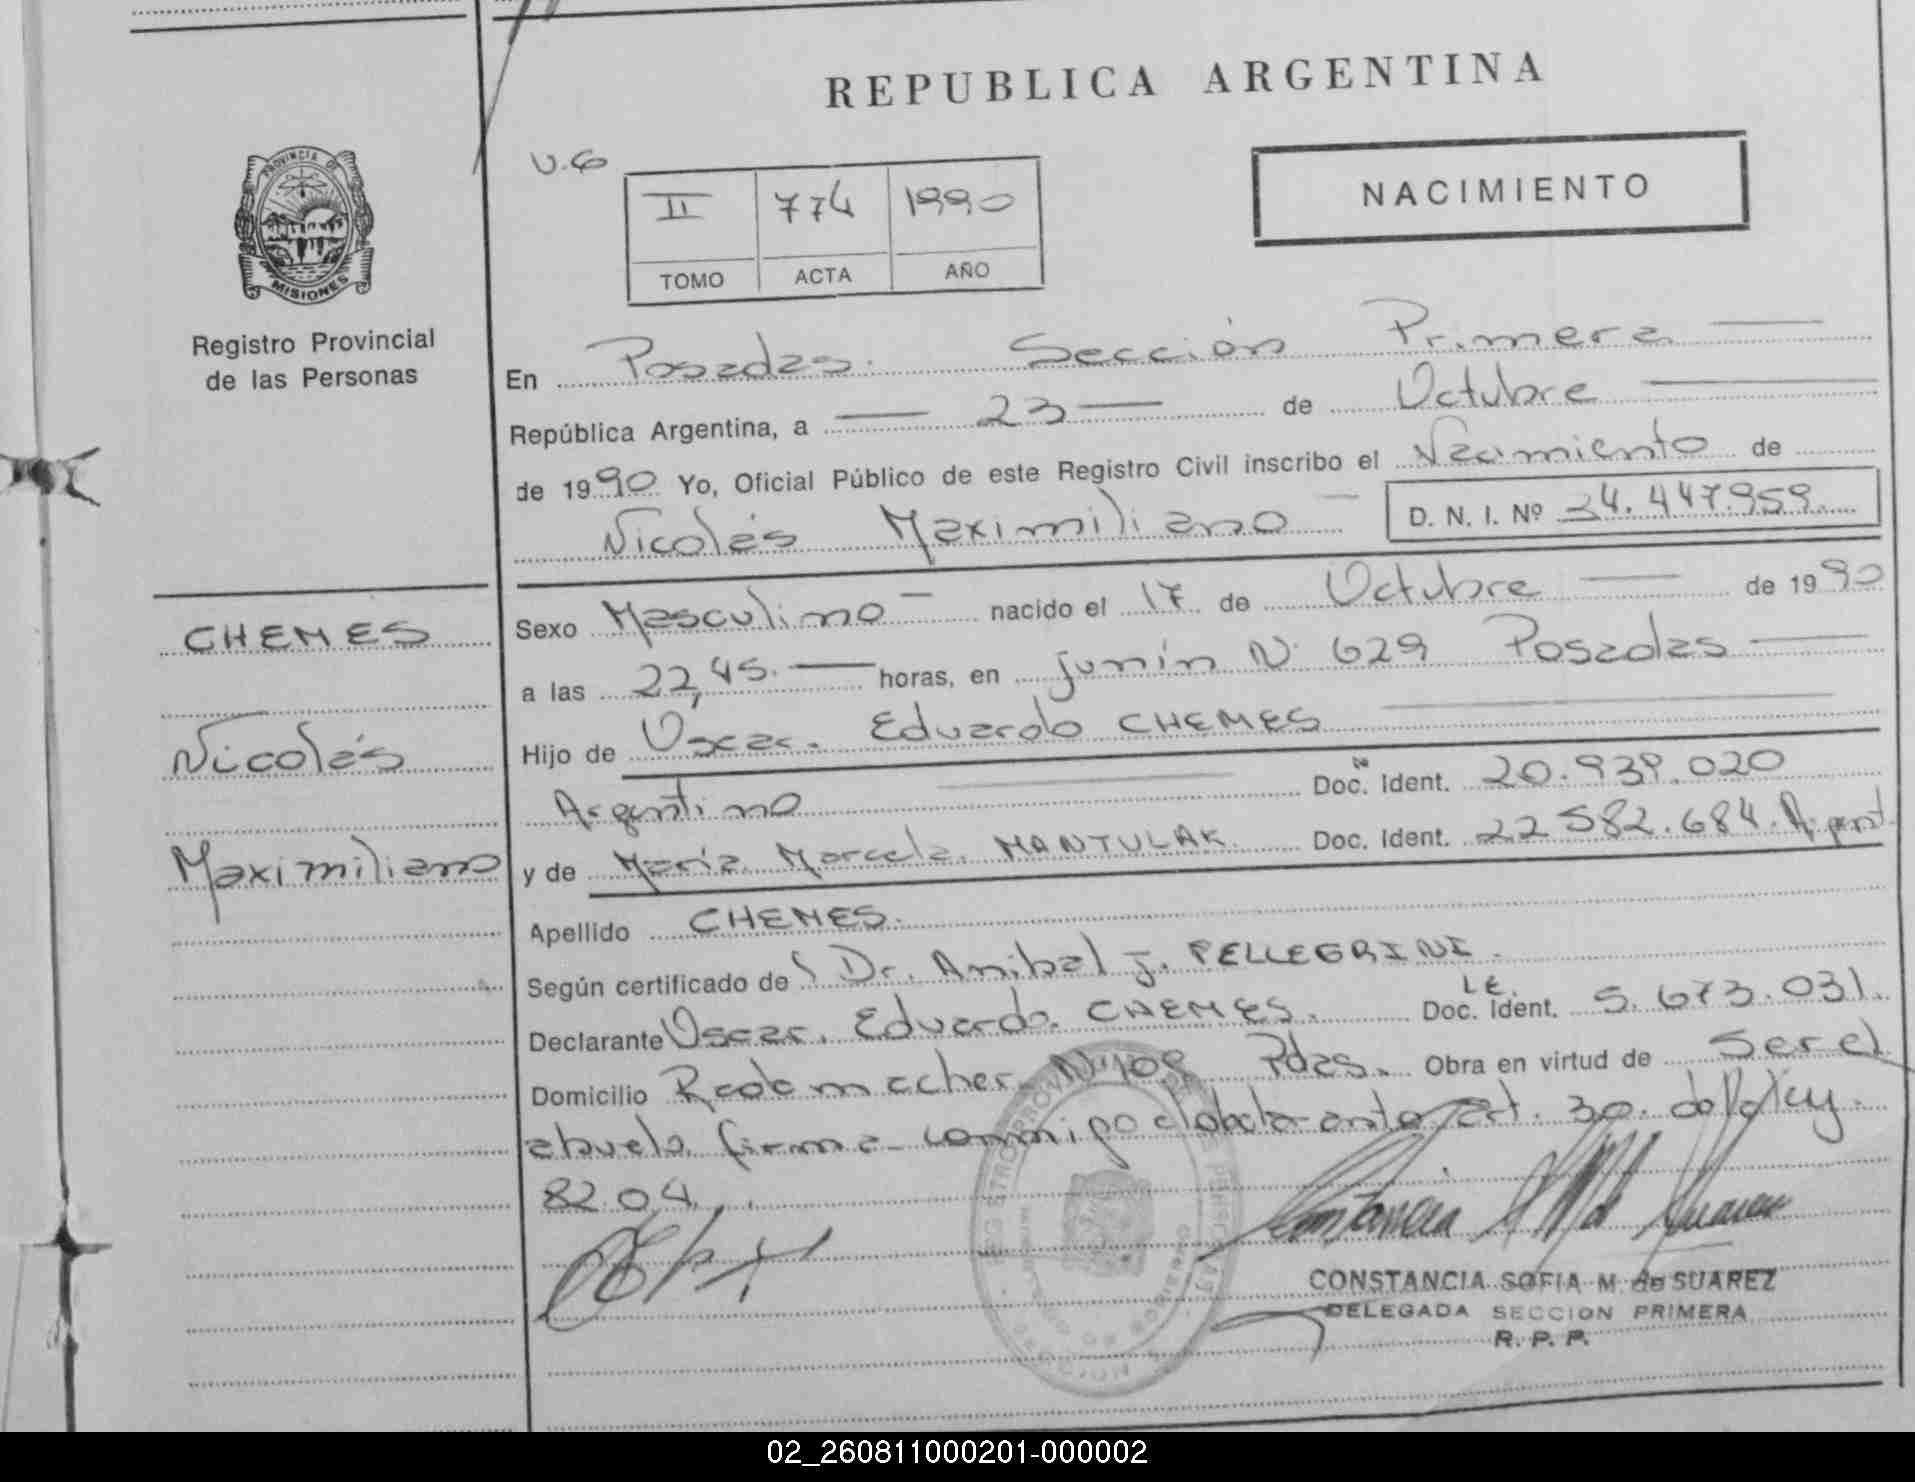 REPUBLICA ARGENTINA
PROVINCIA DE
MISIONES
Registro Provincial
de las Personas
II 774 1990
TOMO ACTA AÑO
NACIMIENTO
En Posadas. Sección Primera
República Argentina, a 23 de Octubre
de 1990 Yo, Oficial Público de este Registro Civil inscribo el Nacimiento de
Nicolás Maximiliano D. N. I. Nº 34.447.959.
CHEMES
Nicolás
Maximiliano
Sexo Masculino nacido el 17 de Octubre de 1990
a las 22,45. horas, en junín N. 629 Posadas
Hijo de Oscar. Eduardo CHEMES
Argentino Doc. Ident. 20.939.020
y de María Marcela. MANTULAK. Doc. Ident. 22582.684. Argent.
Apellido CHEMES.
Según certificado de Dr. Anibal J. PELLEGRINI.
Declarante Oscar. Eduardo. CHEMES. L.E. Doc. Ident. 5.673.031.
Domicilio Rademacher. Nº 108 Pdas. Obra en virtud de Ser el
abuelo. firma conmigo art. 30. ley.
82.04.
CONSTANCIA SOFIA M. de SUAREZ
DELEGADA SECCION PRIMERA
R. P. P.
02_260811000201-000002